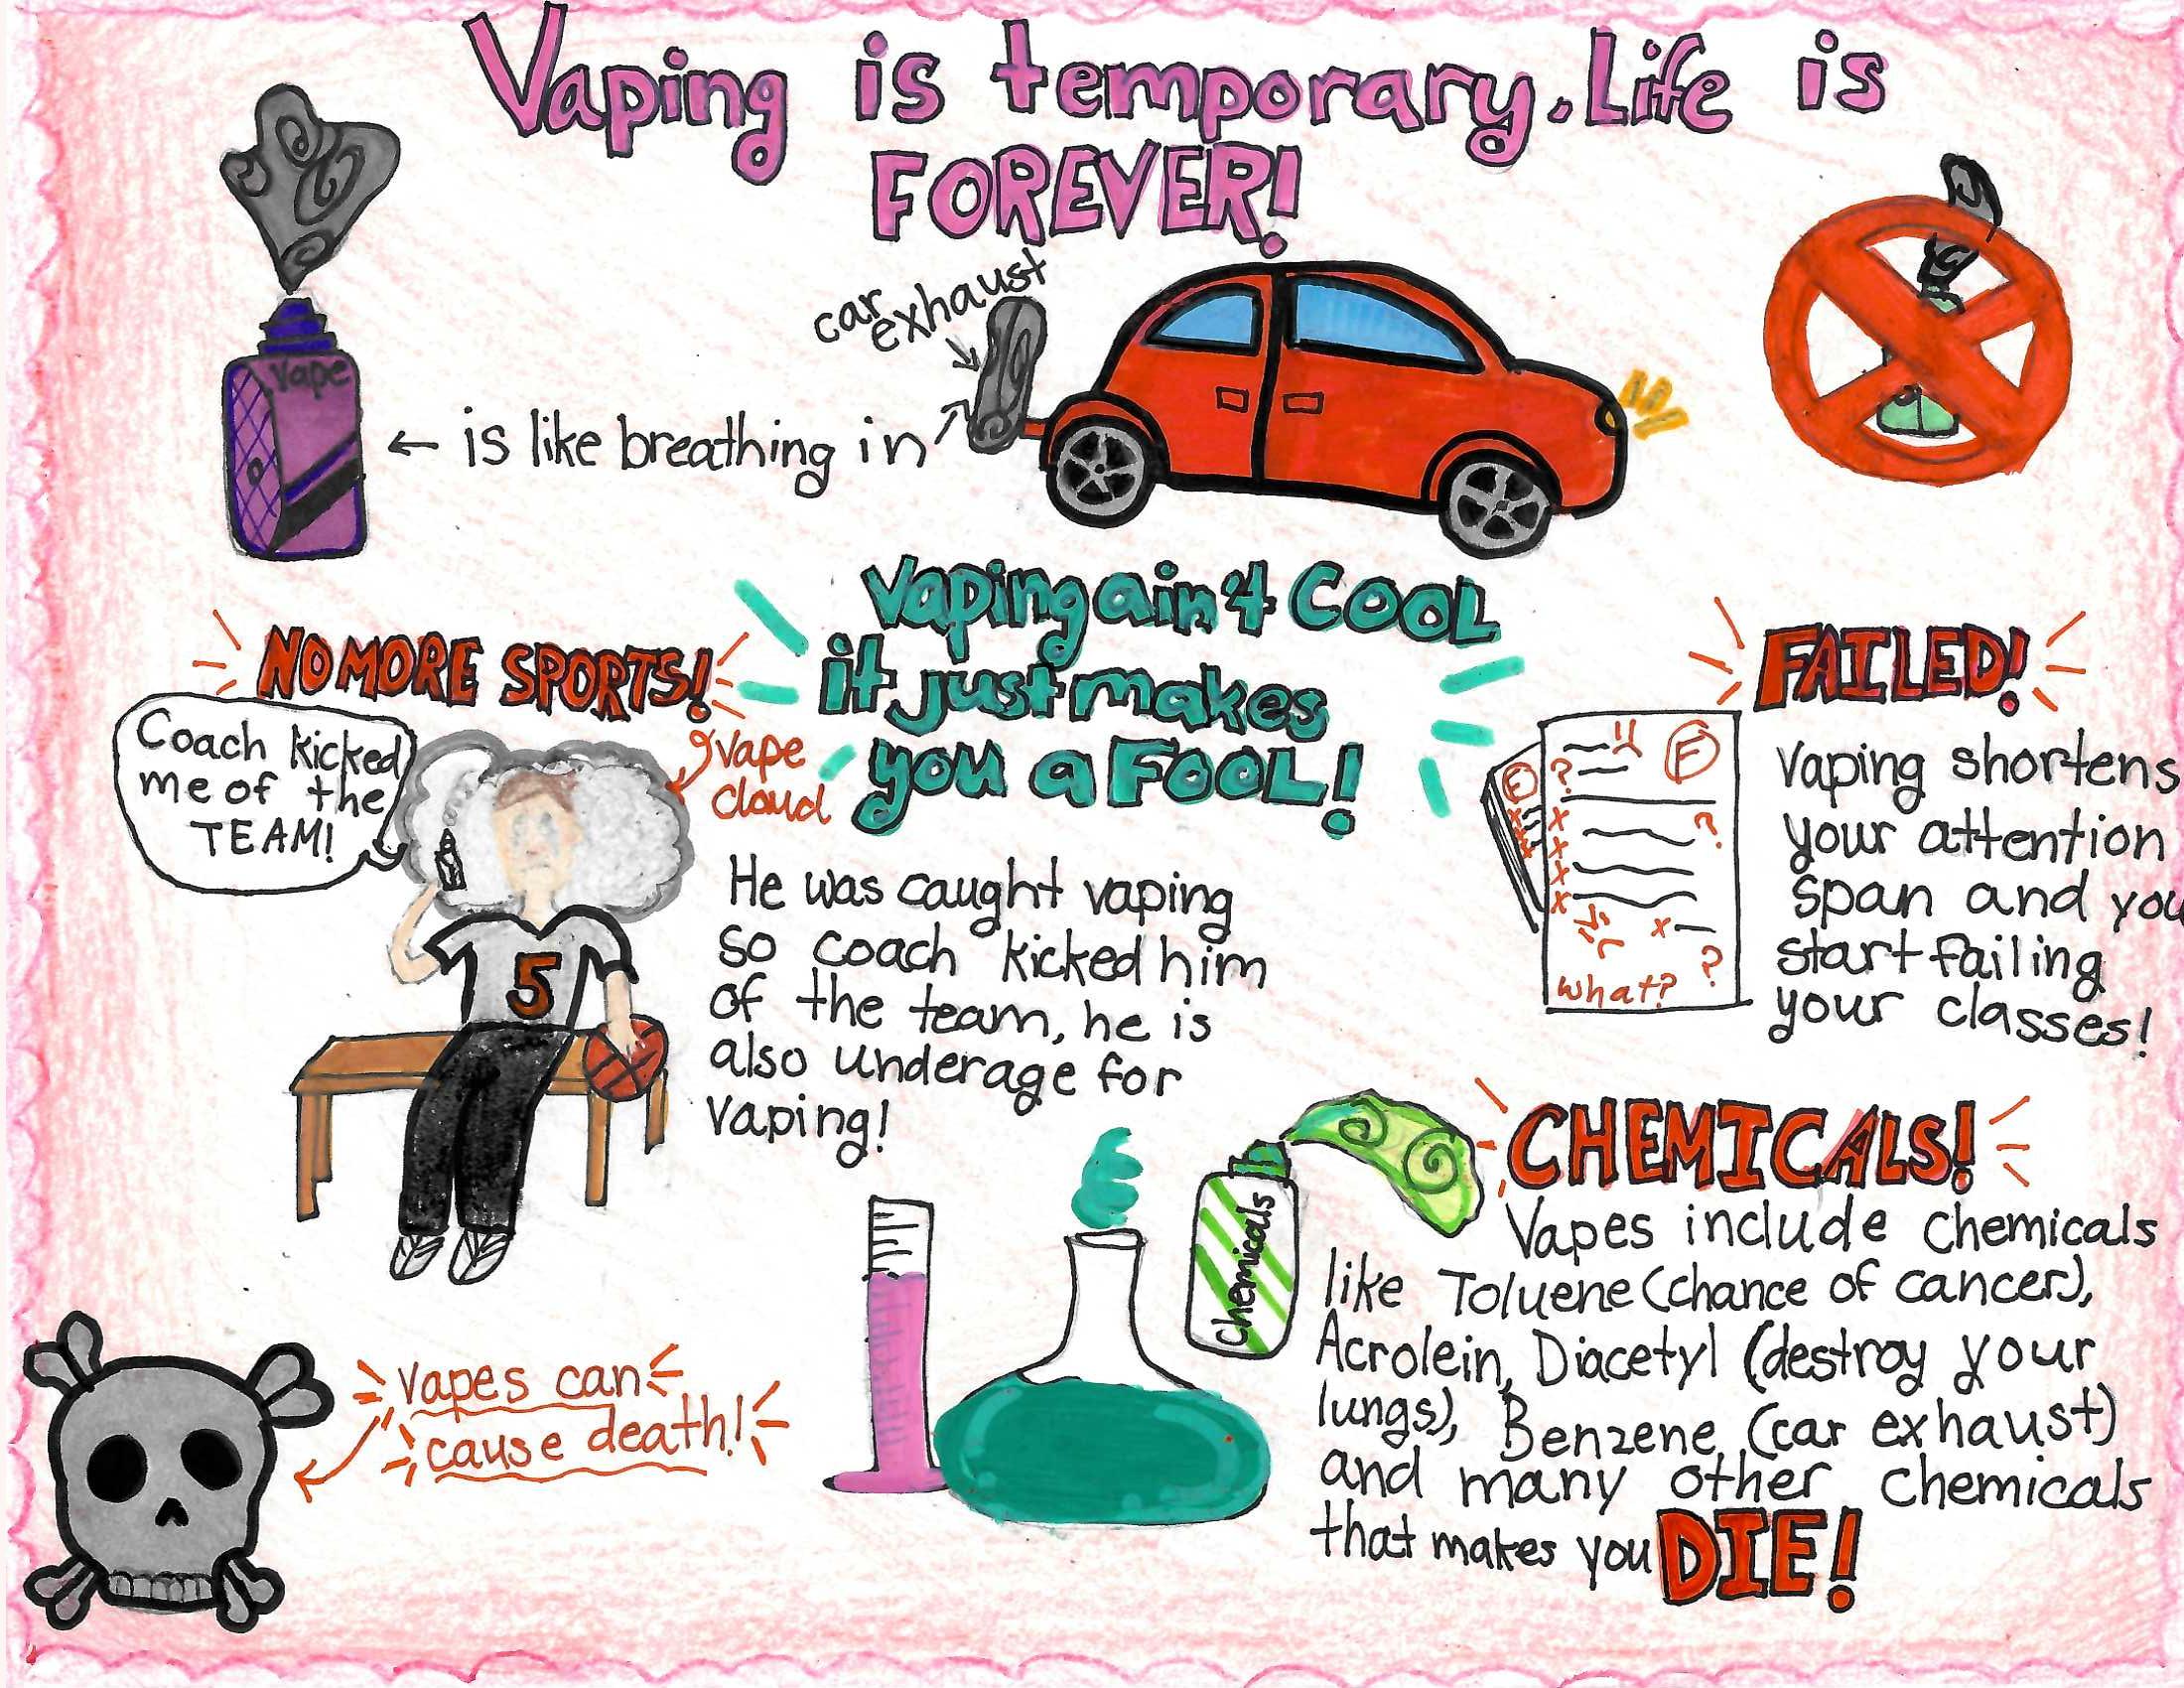 Vaping is temporary. Life is
FOREVER!
car
exhaust
Vape
← is like breathing in
Vaping ain't COOL
it just makes
you a FOOL!
NO MORE SPORTS!
Coach kicked
me of the
TEAM!
vape
cloud
5
He was caught vaping
so coach kicked him
of the team, he is
also underage for
vaping!
FAILED!
F
F
?
?
?
what?
Vaping shortens
your attention
span and you
start failing
your classes!
CHEMICALS!
Chemicals
Vapes include chemicals
like Toluene (chance of cancer),
Acrolein, Diacetyl (destroy your
lungs), Benzene (car exhaust)
and many other chemicals
that makes you DIE!
vapes can
cause death!